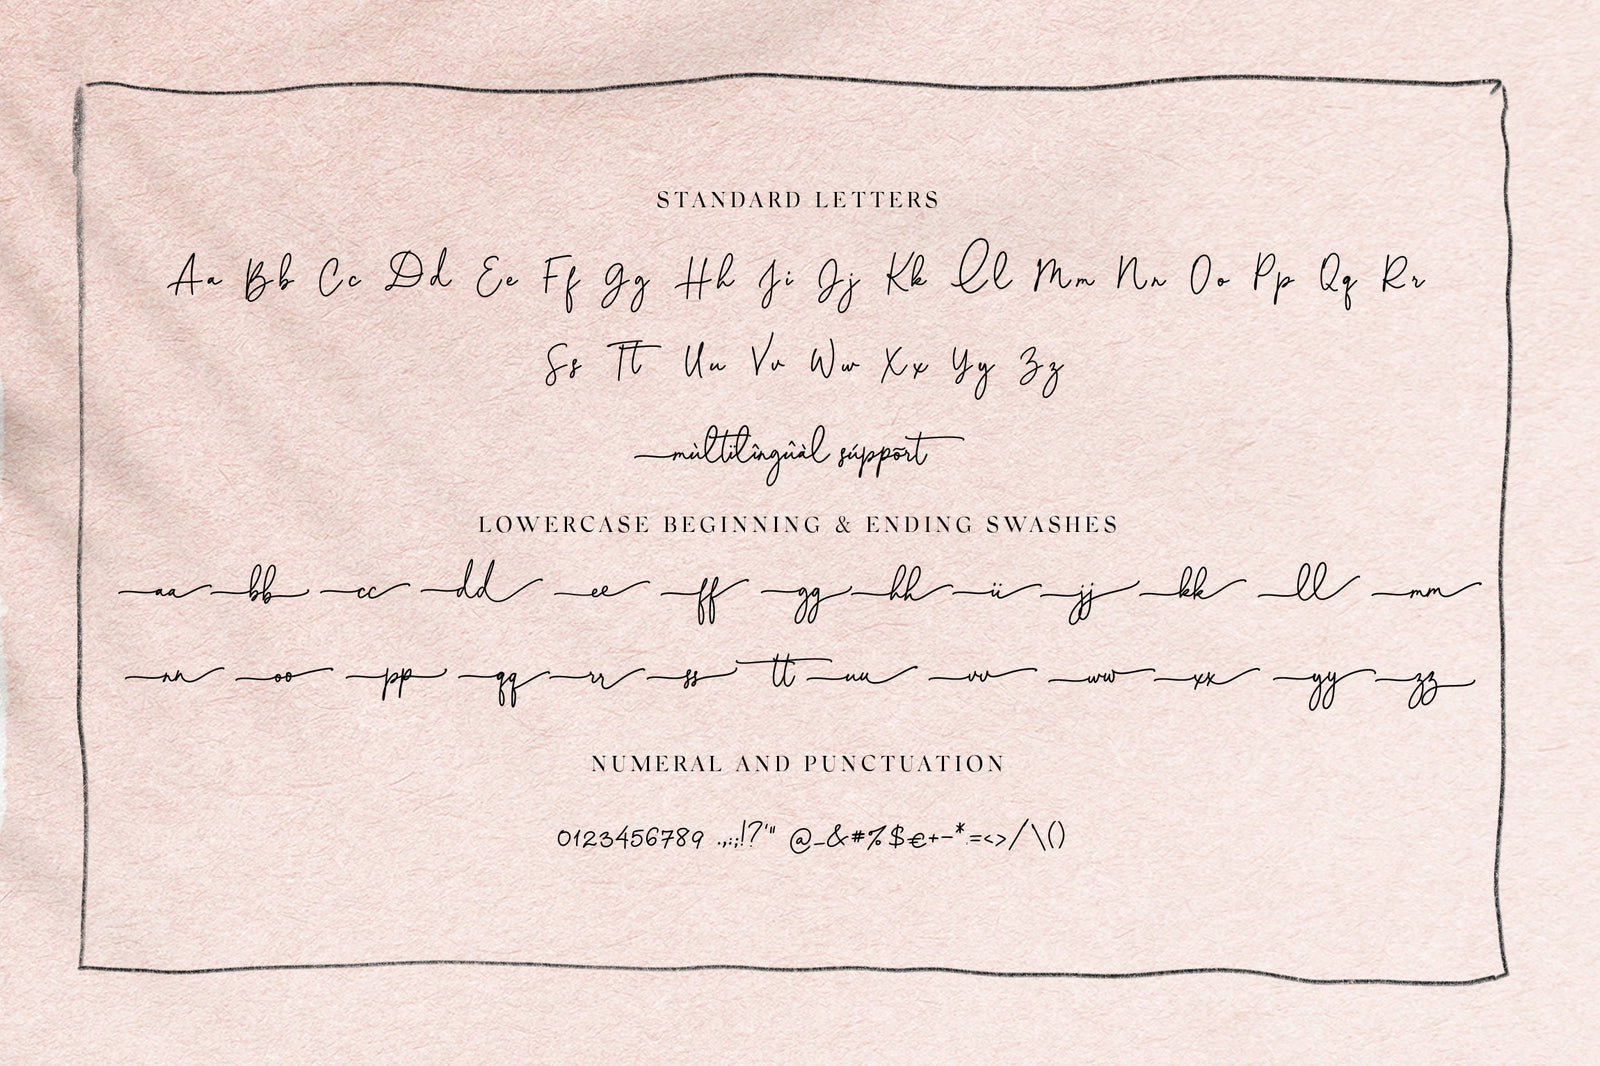 STANDARD LETTERS
Aa Bb Cc Dd Ee Ff Gg Hh Ii Jj Kk Ll Mm Nn Oo Pp Qq Rr
Ss Tt Uu Vv Ww Xx Yy Zz
mùltilîngûàl súppõrt
LOWERCASE BEGINNING & ENDING SWASHES
aa bb cc dd ee ff gg hh ii jj kk ll mm
nn oo pp qq rr ss tt uu vv ww xx yy zz
NUMERAL AND PUNCTUATION
0123456789 .,:;!?'" @_&#%$€+-*=<>/\()